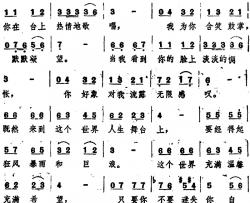 1 1 1 2 3 3 3 3 3 6 3 2 1 0 4 3 2 1 3 2 1
你在台上 热情地歌 唱， 我为你 含笑鼓掌，
0 7 6 5 6 7 6 6 6 7 1 2 1 6 6 5 6 5 3
默默凝 望。 当我看到 你的脸上 淡淡的惆
3 0 4 3 2 1 3 2 1 7 2 1 7 6
怅， 你好象 对我流露 无限感 叹。
6 6 6 7 1 1 1 2 3 2 3 3 2 1 2 2 3 5
既然 来到 这个世界 人生舞台 上， 要经得起
6 5 3 5 3 2 1 2 1 6 6 6 7 1 1 1 2
狂风 暴雨 和 巨 浪。 这个世界 充满温馨
6 2 2 3 6 6 6 2 7 6 5 5 5 6
充满希 望， 只要你 不要迷失 你 自